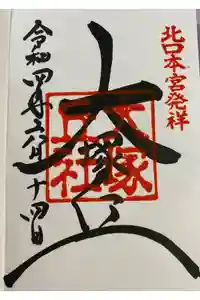 北口本宮発祥
大塚丘
大塚
丘社
令和四年
十四日